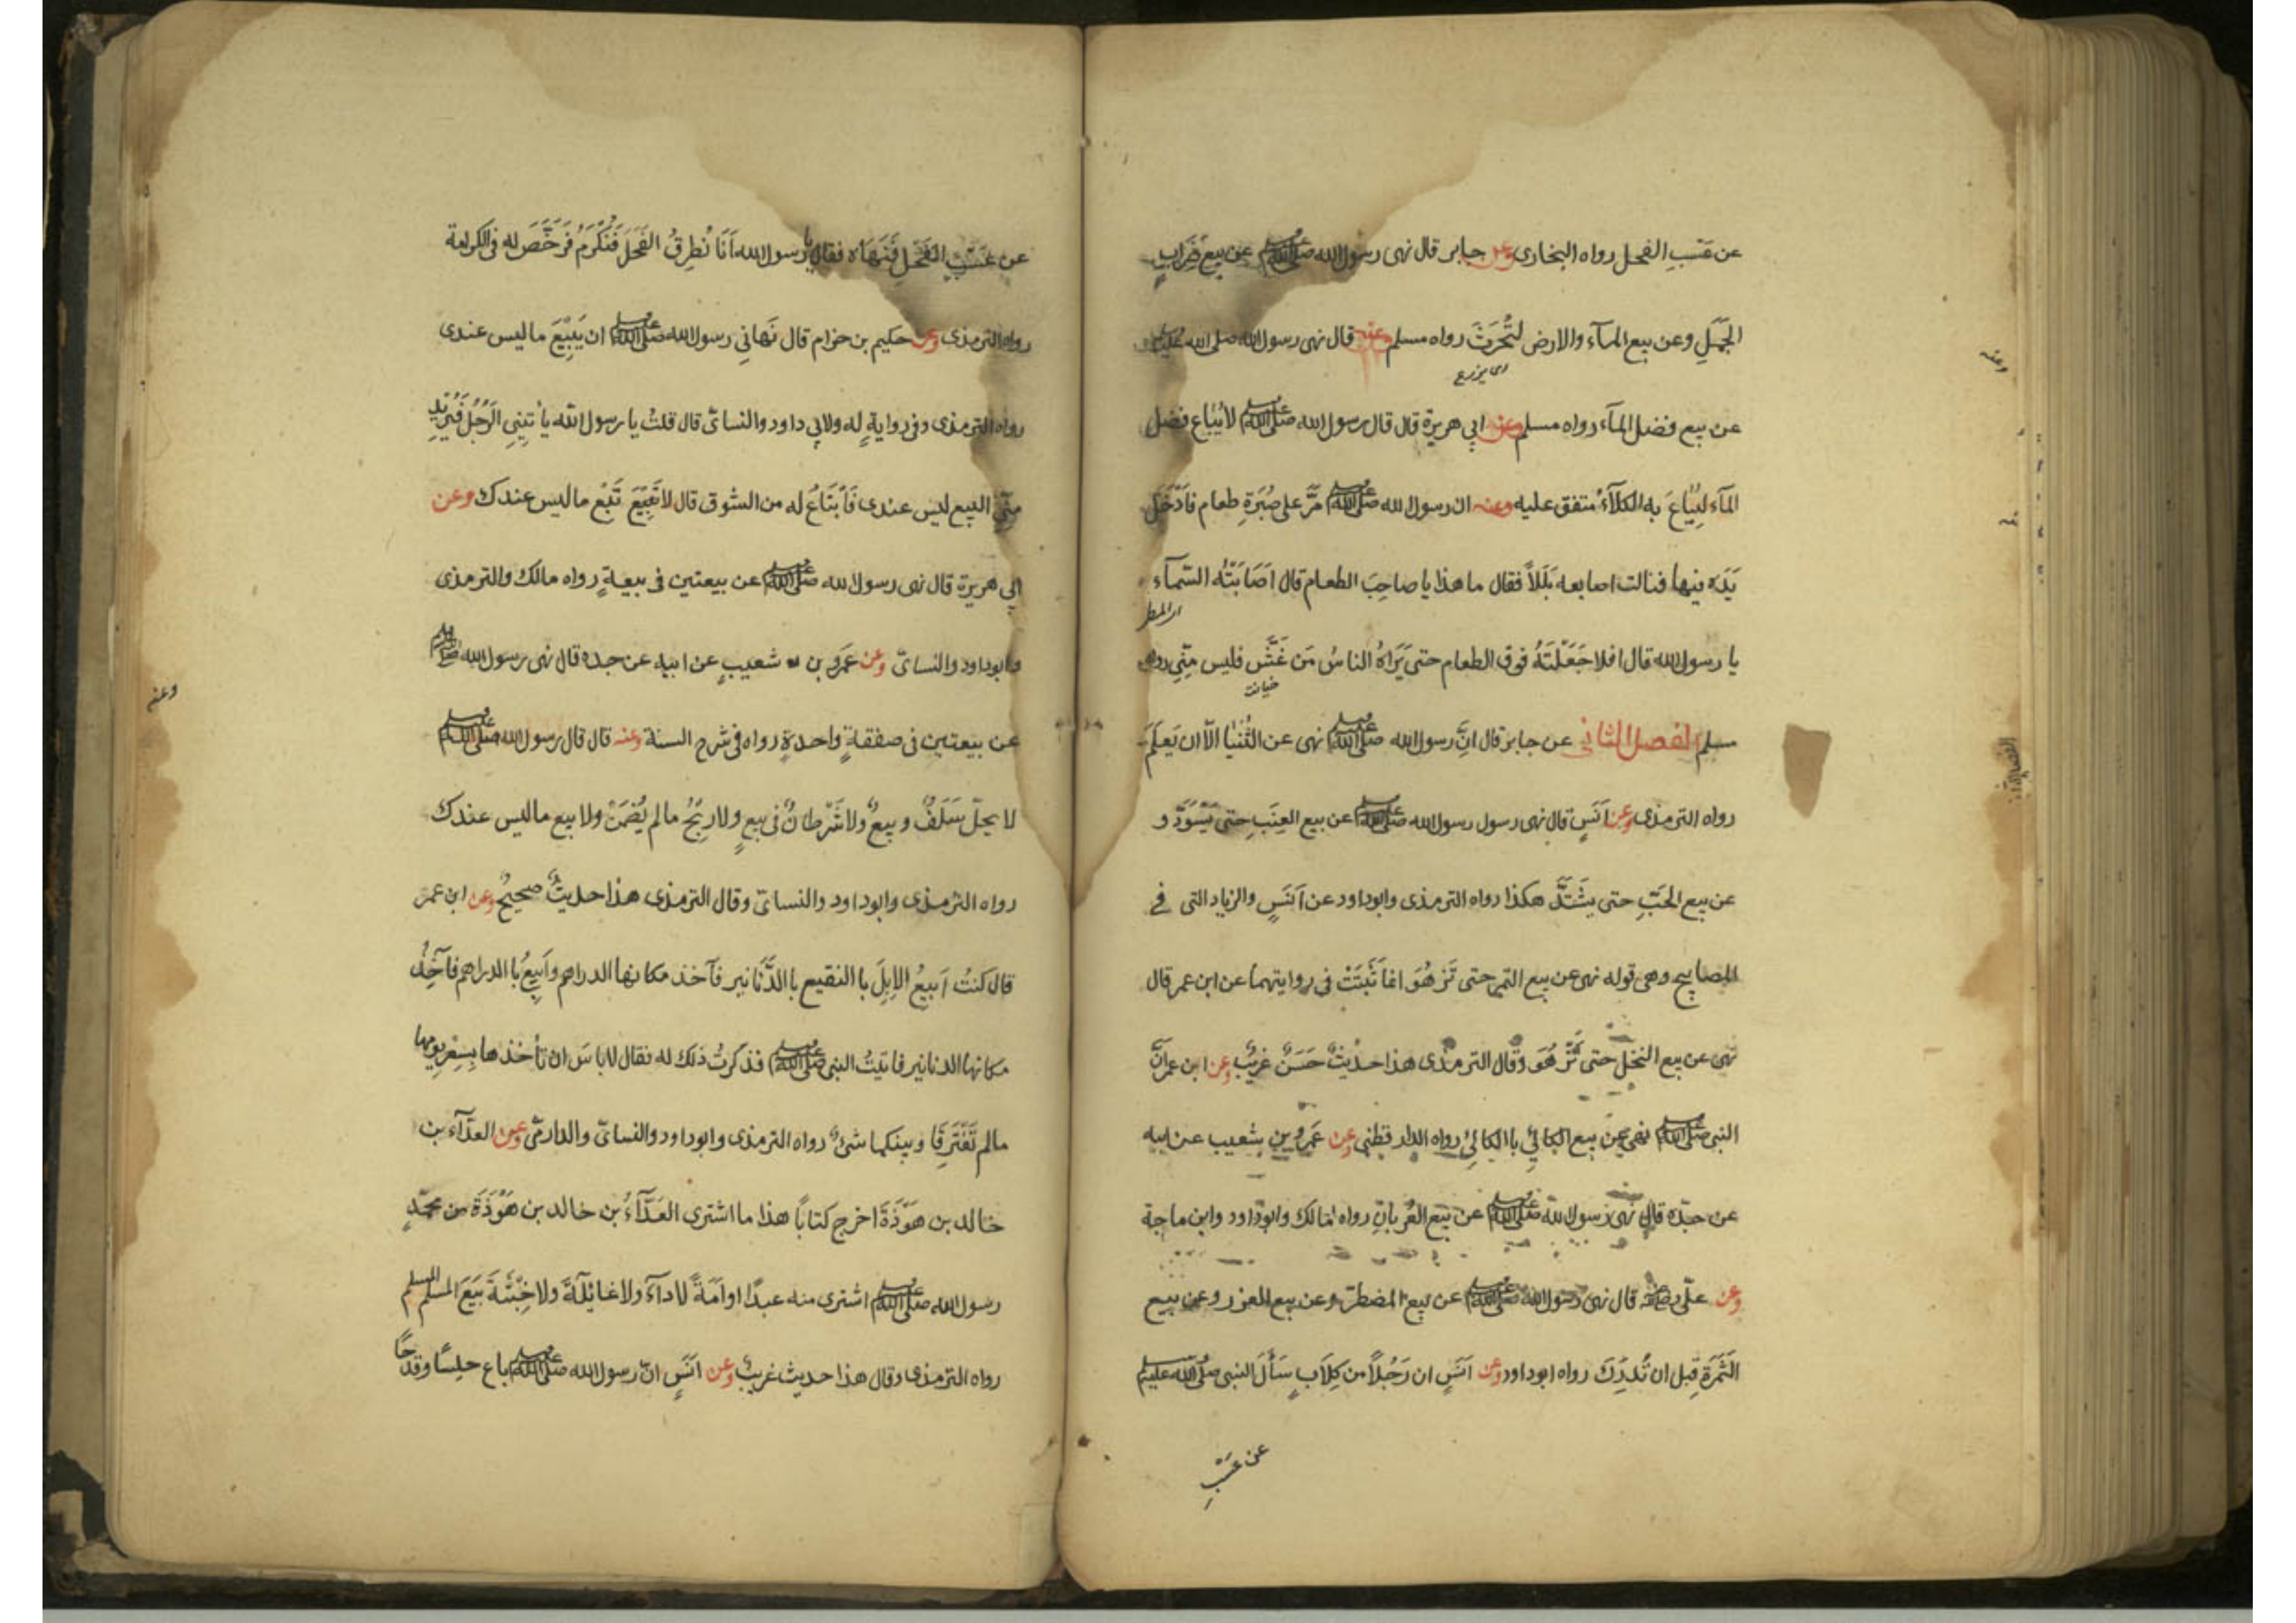 عن عَسْبِ الفحل رواه البخارى وعن جابر قال نهى رسول الله صلى الله عليه وسلم عن بيع ضِرَابِ
الجَمَلِ وعن بيع المآء والارض لتُحْرَثَ رواه مسلم وعنه قال نهى رسول الله صلى الله عليه وسلم
اى يزرع
عن بيع فضل المآء رواه مسلم وعن ابي هريرة قال قال رسول الله صلى الله عليه وسلم لا يُبَاع فضل
المآء ليُبَاعَ به الكلَأُ متفق عليه وعنه ان رسول الله صلى الله عليه وسلم مَرَّ على صُبْرَةِ طعام فاَدْخَلَ
يَدَه فيها فنالت اصابعه بَلَلاً فقال ما هذا يا صاحِبَ الطعام قال اَصَابَتْهُ السّمآء
اى المطر
يا رسول الله قال افلا جَعَلْتَهُ فوق الطعام حتى يَرَاهُ الناسُ مَن غَشَّ فليس مِنّي رواه
خيانت
مسلم الفصل الثاني عن جابر قال انَّ رسول الله صلى الله عليه وسلم نهى عن الثُنْيَا الّا ان يَعلَمَ
رواه الترمذى وعن اَنَسٍ قال نهى رسول رسول الله صلى الله عليه وسلم عن بيع العِنَبِ حتى يَسْوَدَّ و
عن بيع الحَبِّ حتى يشْتَدَّ هكذا رواه الترمذى وابوداود عن اَنَسٍ والزياد التى فى
المصابيح وهى قوله نهى عن بيع التمر حتى تَزهُوَ انما ثَبَتَتْ فى روايتهما عن ابن عمر قال
نهى عن بيع النخل حتى تَزْهُوَ وقال الترمذى هذا حديثٌ حَسَنٌ غريبٌ وعن ابن عمر انَّ
النبى صلى الله عليه وسلم نهى عن بيع الكالئِ باالكالئِ رواه الدار قطني وعن عَمرِو بن شعيب عن ابيه
عن جدّه قال نهى رسول الله صلى الله عليه وسلم عن بيع العُربانِ رواه مالك وابوداود وابن ماجة
وعن علّى رضه قال نهى رسول الله صلى الله عليه وسلم عن بيع المضطرّ وعن بيع الغرر وعن بيع
الثَمَرَةِ قبل ان تُدرِكَ رواه ابوداود وعن اَنَسٍ ان رَجُلاً من كِلَابٍ سَأَلَ النبى صلى الله عليه وسلم
عن عَسْبِ
وعنه
عن عَسْبِ الفَحْلِ فَنَهَاه فقال يا رسول الله اَنّا نُطرِقُ الفَحَلَ فَنُكْرَمُ فَرَخَّصَ له فى الكرامة
رواه الترمذى وعن حكيم بن حزام قال نَهاني رسول الله صلى الله عليه وسلم ان يَبِيْعَ ما ليس عندى
رواه الترمذى وفى روايةٍ له ولابي داود والنسائ قال قلتُ يا رسول الله يأتيني الرَجُلُ فَيُرِيْدُ
مِنّي البيع ليس عندى فَأَبْتَاعُ له من السُّوق قال لا تَبِيْعَ تَبْع ما ليس عندك وعن
ابي هريرة قال نهى رسول الله صلى الله عليه وسلم عن بيعتين فى بيعةٍ رواه مالك والترمذى
وابوداود والنسائ وعن عَمرو بن شعيبٍ عن ابيه عن جده قال نهى رسول الله صلى الله عليه وسلم
عن بيعتينِ فى صفقةٍ واحدةٍ رواه فى شرح السنة وعنه قال قال رسول الله صلى الله عليه وسلم
لا يحلّ سَلَفٌ وبيعٌ ولا شَرْطانِ فى بيعٍ ولا رِبْحُ ما لم يُضمَنْ ولا بيع ما ليس عندك
رواه الترمذى وابوداود والنسائ وقال الترمذى هذا حديثٌ صحيحٌ وعن ابن عمر
قال كنتُ اَبيعُ الاِبِلَ باالنقيع باالدَّنَانير فآخذ مكانها الدراهم واَبِيعُ باالدراهم فآخُذُ
مكانها الدنانير فاتيتُ النبى صلى الله عليه وسلم فذكرتُ ذلك له فقال لا باسَ ان تأخذها بسِعْرِ يومها
مالم تَفْتَرِقَا وبينكما شئٌ رواه الترمذى وابوداود والنسائ والدارمّى وعن العدّآء بن
خالد بن هَوْذَةَ اخرج كتابًا هذا ما اشترى العَدَّآءُ بن خالد بن هَوْذَةَ من محمّدٍ
رسول الله صلى الله عليه وسلم اشترى منه عبدًا او اَمَةً لا دآءَ ولا غائِلَةَ ولا خِبْثَةَ بَيَعَ المسلم المسلم
رواه الترمذى وقال هذا حديث غريبٌ وعن انَسٍ انّ رسول الله صلى الله عليه وسلم باع حِلسًا وقدَحًا
وعنه